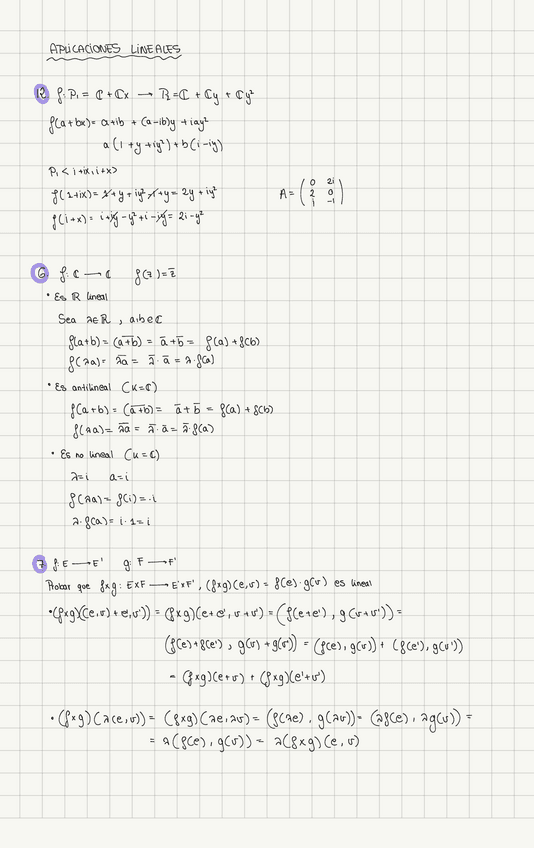 APLICACIONES LINEALES
12 f: P₁ = ℂ + ℂx → P₂ = ℂ + ℂy + ℂy²
f(a+bx) = a+ib + (a-ib)y + iay²
a(1+y+iy²) + b(i-iy)
P₁ < 1+ix, i+x>
f(1+ix) = 1+y+iy²-1+y = 2y+iy²
A = ( 0 2i
2 0
i -1 )
f(i+x) = i+iy-y²+i-iy = 2i-y²
6 f: ℂ → ℂ f(z) = z̅
• Es ℝ lineal
Sea λ∈ℝ, a,b∈ℂ
f(a+b) = (a+b)̅ = a̅+b̅ = f(a)+f(b)
f(λa) = λ̅a̅ = λ̅·a̅ = λ·f(a)
• Es antilineal (K=ℂ)
f(a+b) = (a+b)̅ = a̅+b̅ = f(a)+f(b)
f(λa) = λ̅a̅ = λ̅·a̅ = λ̅·f(a)
• Es no lineal (K=ℂ)
λ=i a=i
f(λa) = f(i) = -i
λ·f(a) = i·1 = i
7 f: E → E' g: F → F'
Probar que f×g: E×F → E'×F', (f×g)(e,v) = f(e)·g(v) es lineal
•(f×g)((e,v)+e',v')) = (f×g)(e+e', v+v') = (f(e+e'), g(v+v')) =
(f(e)+f(e'), g(v)+g(v')) = (f(e), g(v)) + (f(e'), g(v'))
= (f×g)(e+v) + (f×g)(e'+v')
• (f×g)(λ(e,v)) = (f×g)(λe,λv) = (f(λe), g(λv)) = (λf(e), λg(v)) =
= λ(f(e), g(v)) = λ(f×g)(e,v)